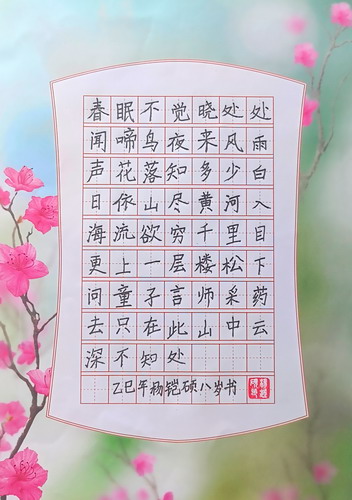 春眠不觉晓处处
闻啼鸟夜来风雨
声花落知多少白
日依山尽黄河入
海流欲穷千里目
更上一层楼松下
问童子言师采药
去只在此山中云
深不知处
乙巳年杨铠硕八岁书